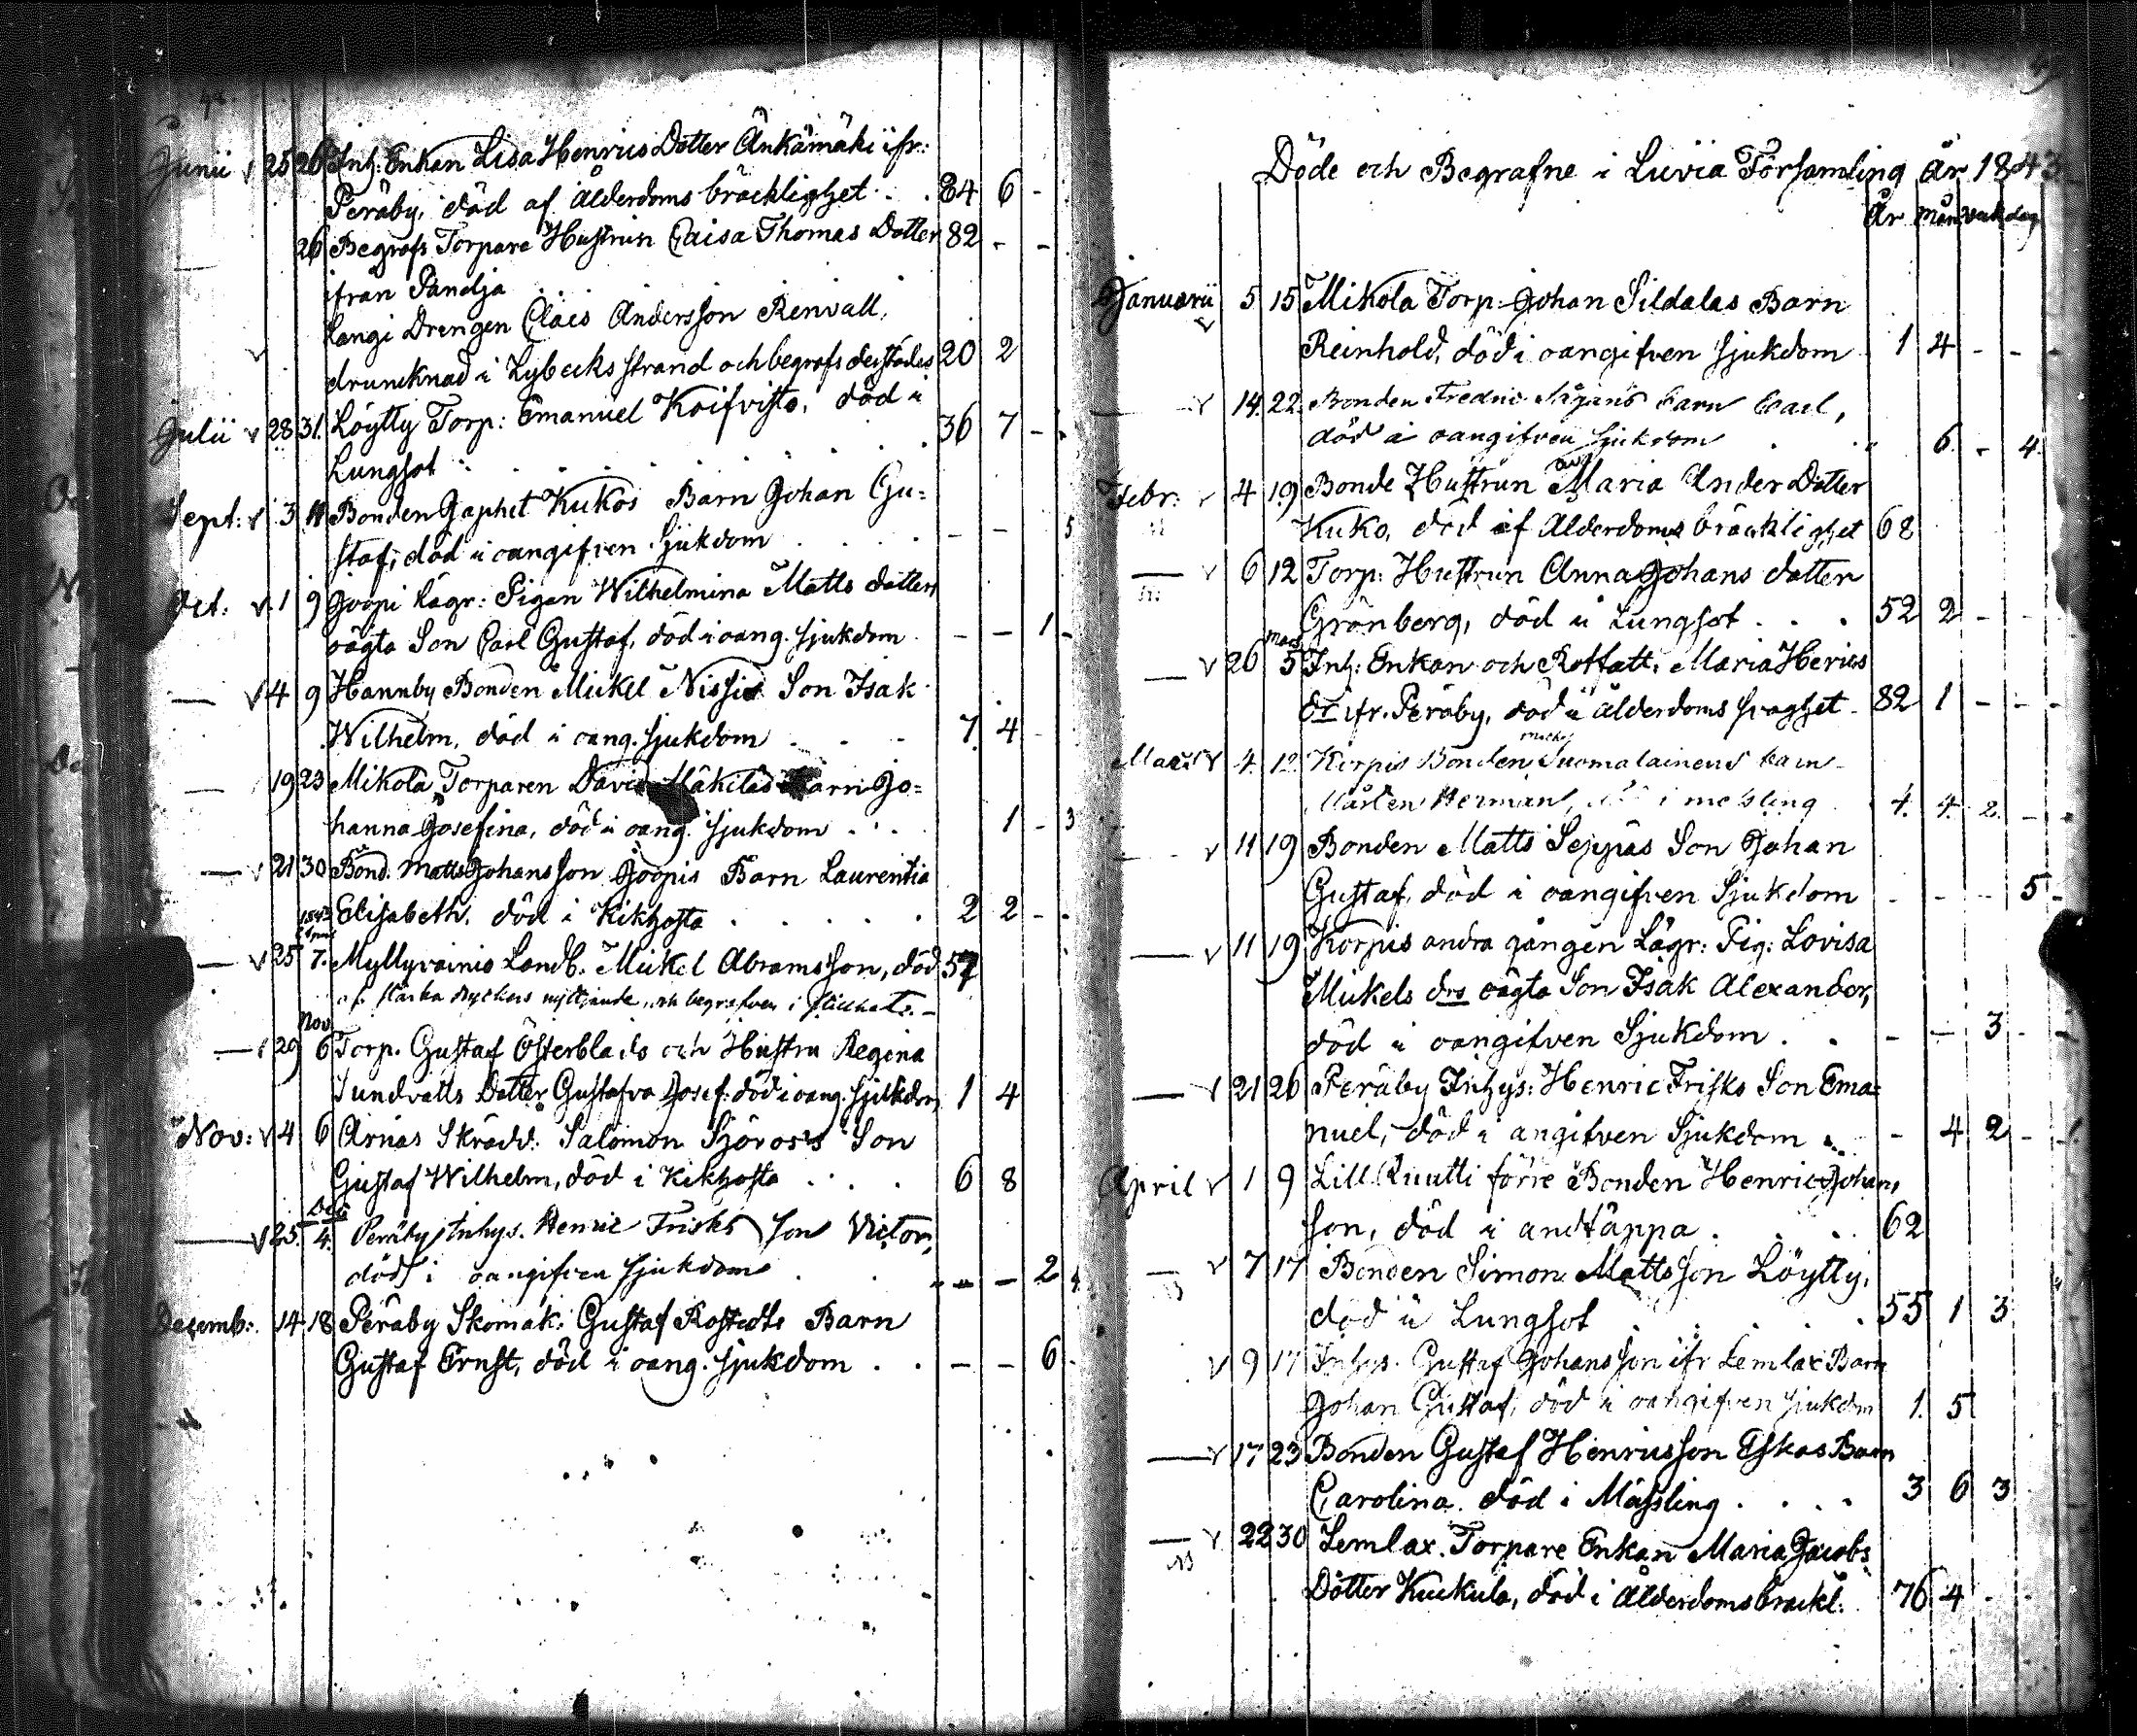 48.
Junii v 25 26 Inh: Enkan Lisa Henrics Dotter Änkämäki ifr:
Peräby, död af Ålderdoms bräcklighet . . 84 6 -
26 Begrofs Torpare Hustrun Caisa Thomas Dotter 82 - -
ifrån Pandja
v Langi Drengen Claes Andersson Renvall,
drunknad i Lybecks strand och begrofs derstädes 20 2
Julii v 28 31. Löytty Torp: Emanuel Koifvisto, död i 36 7 -
Lungsot
Sept: v 3 11 Bonden Japhet Kukos Barn Johan Gu=
staf, död i oangifven Sjukdom - - 5
Oct: v 1 9 Joopi Lägr: Pigan Wilhelmina Matts dotters
oägta Son Carl Gustaf, död i oang. sjukdom - - 1 -
— v 4 9 Hannby Bonden Mickel Nissis Son Isak
Wilhelm, död i oang. sjukdom 7. 4
— 19 23 Mikola Torparen David Mäkiläs Barn Jo=
hanna Josefina, död i oang. sjukdom . . . 1 - 3
— v 21 30 Bond. Matts Johansson Joopis Barn Laurentia
Elisabeth, död i Kikhosta 2 2 - -
1843
— v 25 7. Myllyvainio Landb. Mickel Abramsson, död 57
af starka dryckers nyttjande och begrafven i stillhet. -
Nov
— v 29 6 Torp. Gustaf Österblads och Hustru Regina
Sundvalls Dotter Gustafva Josef: död i oang. sjukdom 1 4
Nov: v 4 6 Arnas Skrädd: Salomon Sjöroos's Son
Gustaf Wilhelm, död i Kikhosta . . . . 6 8
Dec
— v 25. 4. Peräby Inhys. Henric Frisks son Victor,
död i oangifven sjukdom - - 2
Decemb: 14 18 Peräby Skomak: Gustaf Rostedts Barn
Gustaf Ernst, död i oang. sjukdom . . - - 6
49
Döde och Begrafne i Luvia Församling År 1843
År mån veck dag
Januarii v 5 15 Mikola Torp: Johan Sildalas Barn
Reinhold, död i oangifven sjukdom 1 4 - - -
— v 14. 22. Bonden Fredric Sågans barn Carl,
död i oangifven sjukdom 6. - 4.
Febr: v 4 19 Bonde Hustrun Maria Anders Dotter
Kuko, död af Ålderdoms bräcklighet 68
— v 6 12 Torp: Hustrun Anna Johans dotter
Grönberg, död i Lungsot . . . 52 2 - - -
Mars
— v 26 5 Inh: Enkan och Rotfatt: Maria Henrics
Dr ifr. Peräby, död i ålderdoms svaghet - 82 1 - - -
Mars v 4. 12. Korpis Bonden Suomalainens barn
Mårten Herman, död i messling 4. 4. 2. - -
— v 11 19 Bonden Matts Seppäs Son Johan
Gustaf, död i oangifven Sjukdom - - - 5 -
— v 11 19 Korpis andra gången Lägr: Pig: Lovisa
Mickels drs oägta Son Isak Alexander,
död i oangifven Sjukdom . . - - 3 - -
— v 21 26 Peräby Inhys: Henric Frisks Son Ema=
nuel, död i angifven Sjukdom . - 4 2 - -
April v 1 9 Lill Ruutti förre Bonden Henric Johans
son, död i andtäppa . . . 62
— v 7 17 Bonden Simon Mattsson Löytty,
död i Lungsot 55 1 3
v 9 17 Inhys. Gustaf Johansson ifr Lemlax Barn
Johan Gustaf, död i oangifven sjukdom 1. 5
— v 17 23 Bonden Gustaf Henricsson Eskos Barn
Carolina. död i Mässling . . . . 3 6 3
— v 22 30 Lemlax. Torpare Enkan Maria Jacobs
Dotter Kuckula, död i Ålderdoms bräckl: 76 4 - -